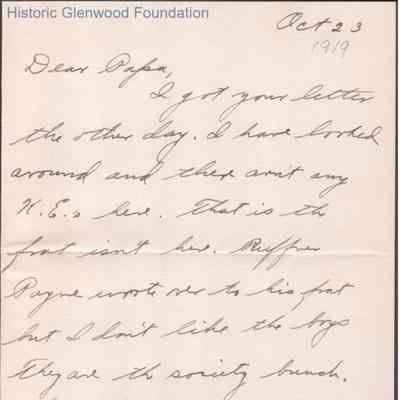 Historic Glenwood Foundation
Oct 23
1919
Dear Papa,
I got your letter
the other day. I have looked
around and there ain't any
K.E.s here. That is the
frat isn't here. Ruffner
Payne wrote over to his frat
but I don't like the boys
They are the society bunch.